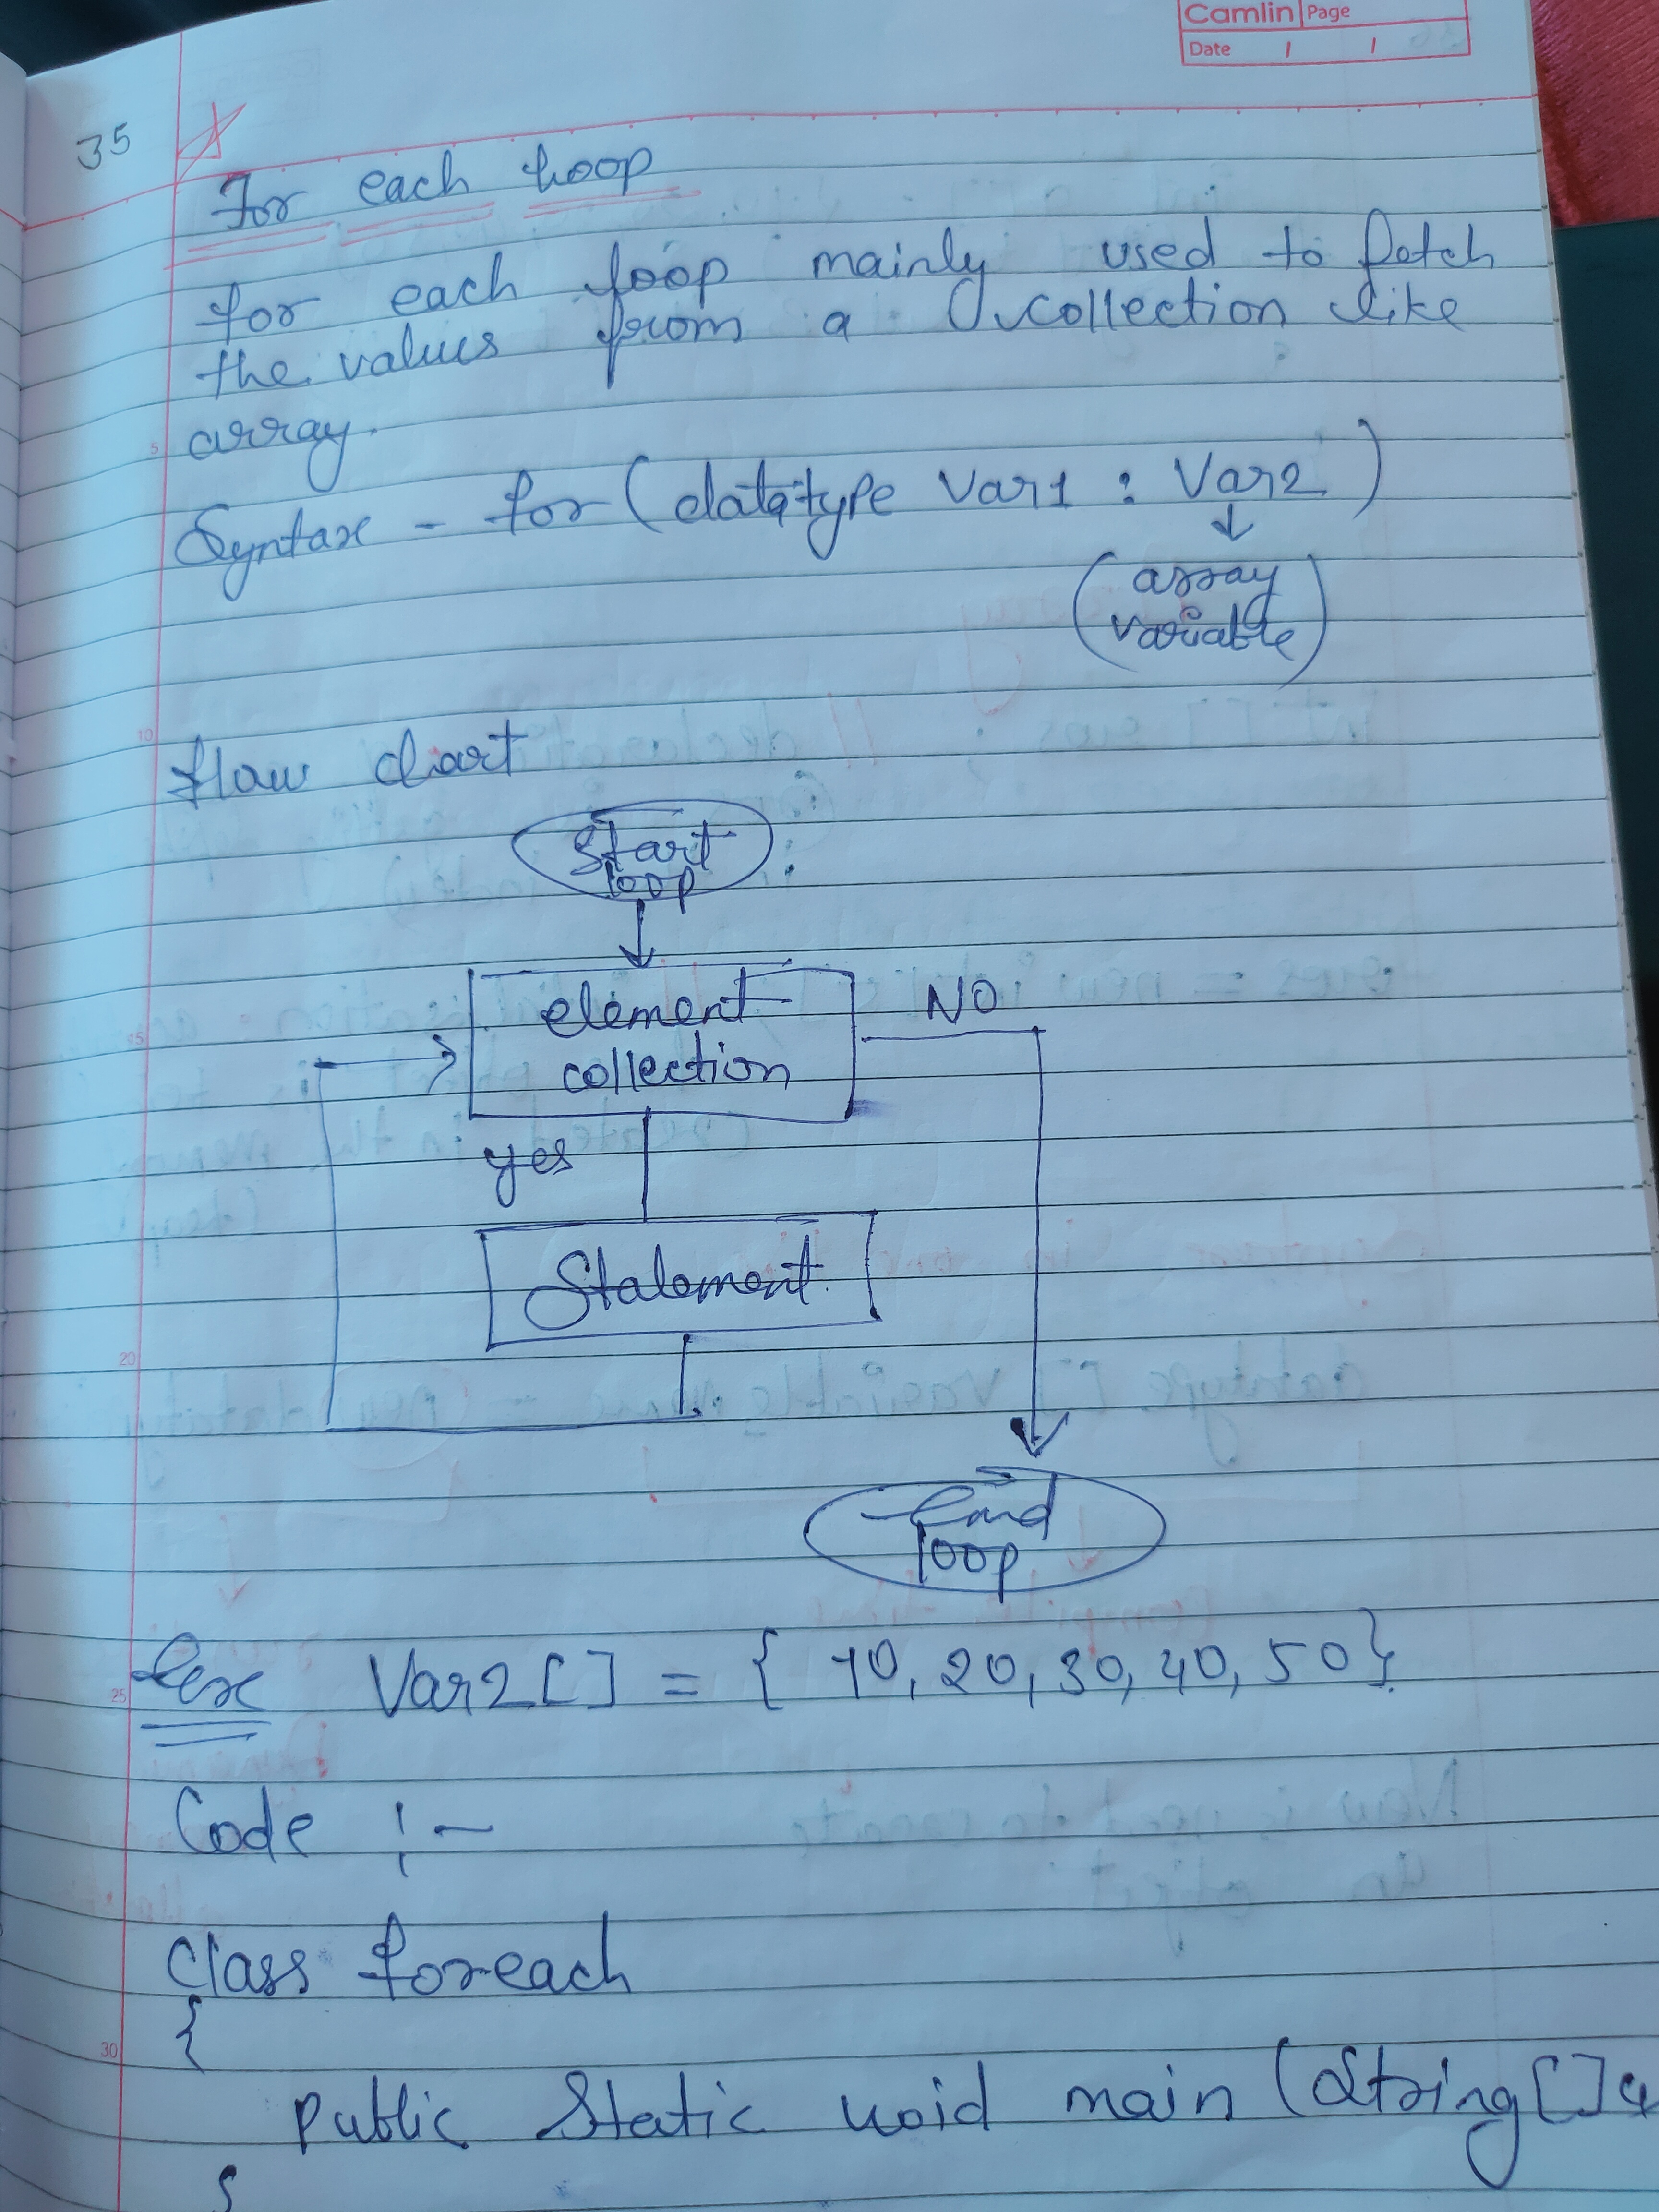 Camlin Page
Date / /
35
For each Loop
for each loop mainly used to fetch
the values from a collection like
array.
Syntax - for (datatype Var1 : Var2)
(array
variable)
flow chart
Start
loop
element
collection
NO
yes
Statement
End
loop
Ex Var2[] = { 10, 20, 30, 40, 50}
Code :-
Class foreach
{
public Static void main (String[]
{
5
10
15
20
25
30